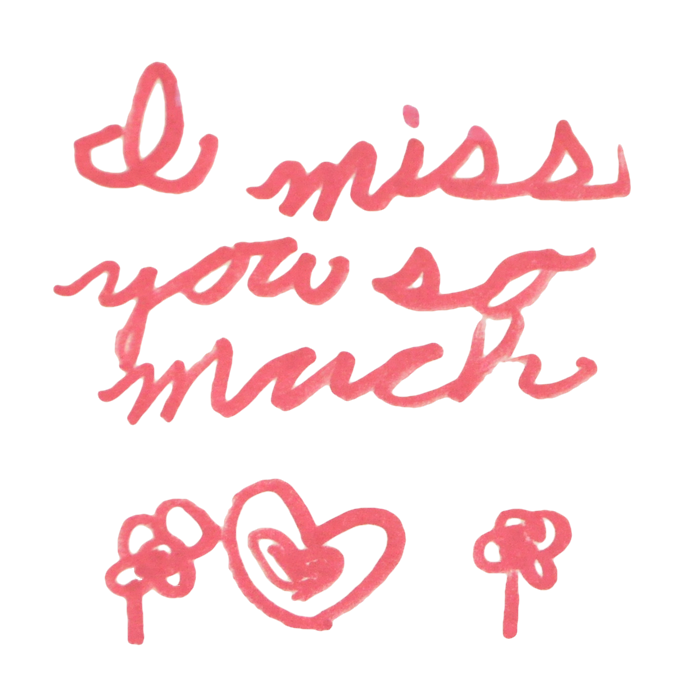 I miss
you so
much